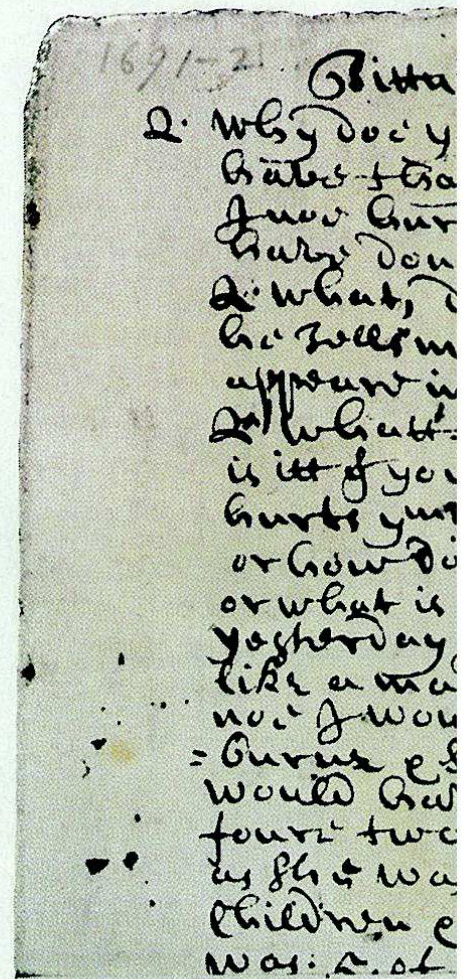 1691-2
Titta
Q. why doe y
have tha
I noe hur
have don
Q. what, d
he tells m
appeare in
Q. whatt
is itt yt you
hurts ym
or how do
or what is
yesterday
like a ma
noe I wou
= burne & s
would hav
foure two
as she wa
children &
was: of